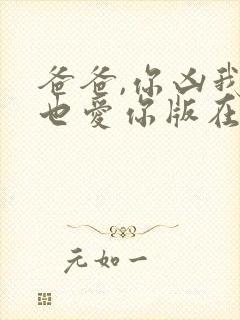 爸爸,你凶我
也爱你版在
元如一